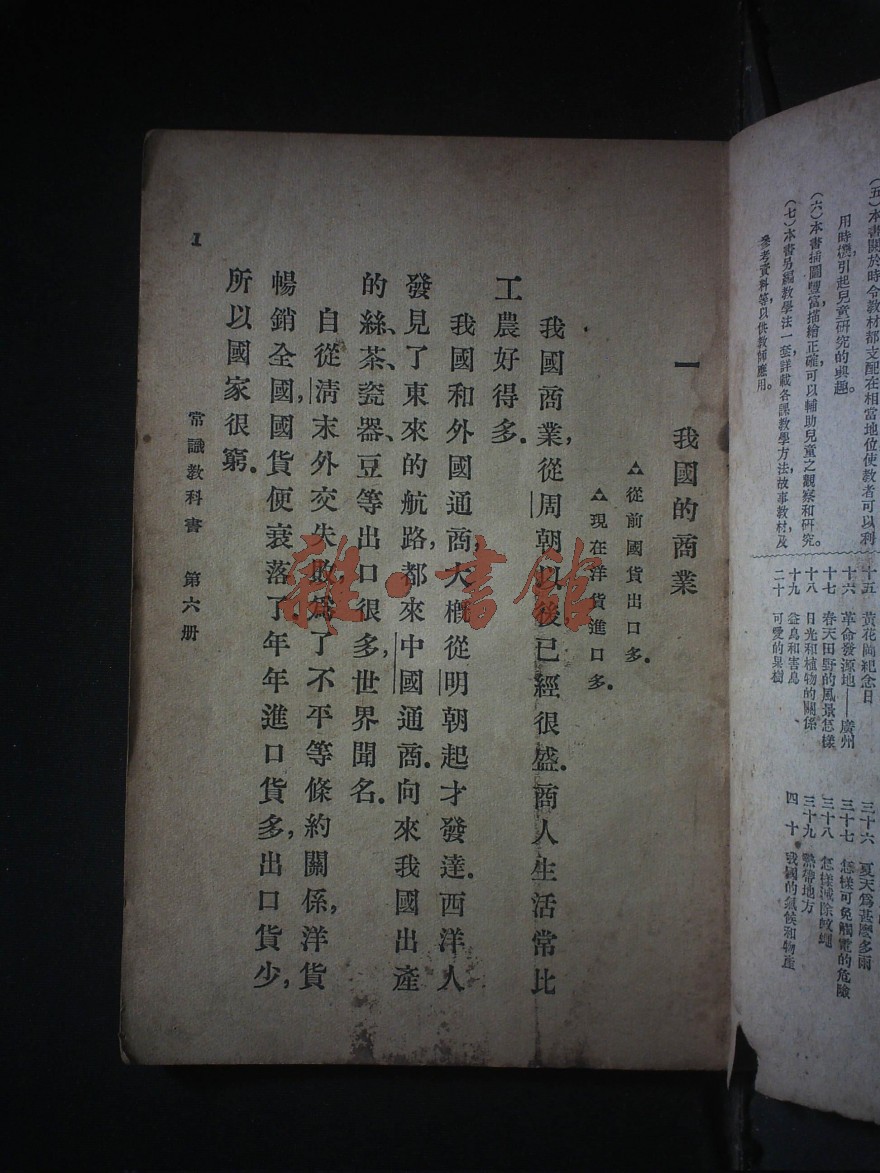 (五)本書關於時令教材都支配在相當地位使教者可以利
用時機,引起兒童研究的興趣。
(六)本書插圖豐富,描繪正確,可以輔助兒童之觀察和研究。
(七)本書另編教學法一套,詳載各課教學方法故事教材,及
參考資料等,以供教師應用。
十五 黃花岡紀念日
十六 革命發源地——廣州
十七 春天田野的風景怎樣
十八 日光和植物的關係
十九 益鳥和害鳥
二十 可愛的果樹
三十六 夏天爲甚麼多雨
三十七 怎樣可免觸電的危險
三十八 怎樣滅除蚊蠅
三十九 熱帶地方
四十 我國的氣候和物產
一 我國的商業
△從前國貨出口多。
△現在洋貨進口多。
我國商業,從周朝以後,已經很盛。商人生活常比
工農好得多。
我國和外國通商,大概從明朝起才發達。西洋人
發見了東來的航路,都來中國通商。向來我國出產
的絲、茶、瓷器、豆等出口很多,世界聞名。
自從清末外交失敗,爲了不平等條約關係,洋貨
暢銷全國,國貨便衰落了。年年進口貨多,出口貨少,
所以國家很窮。
常識教科書 第六册
1
雜·書館